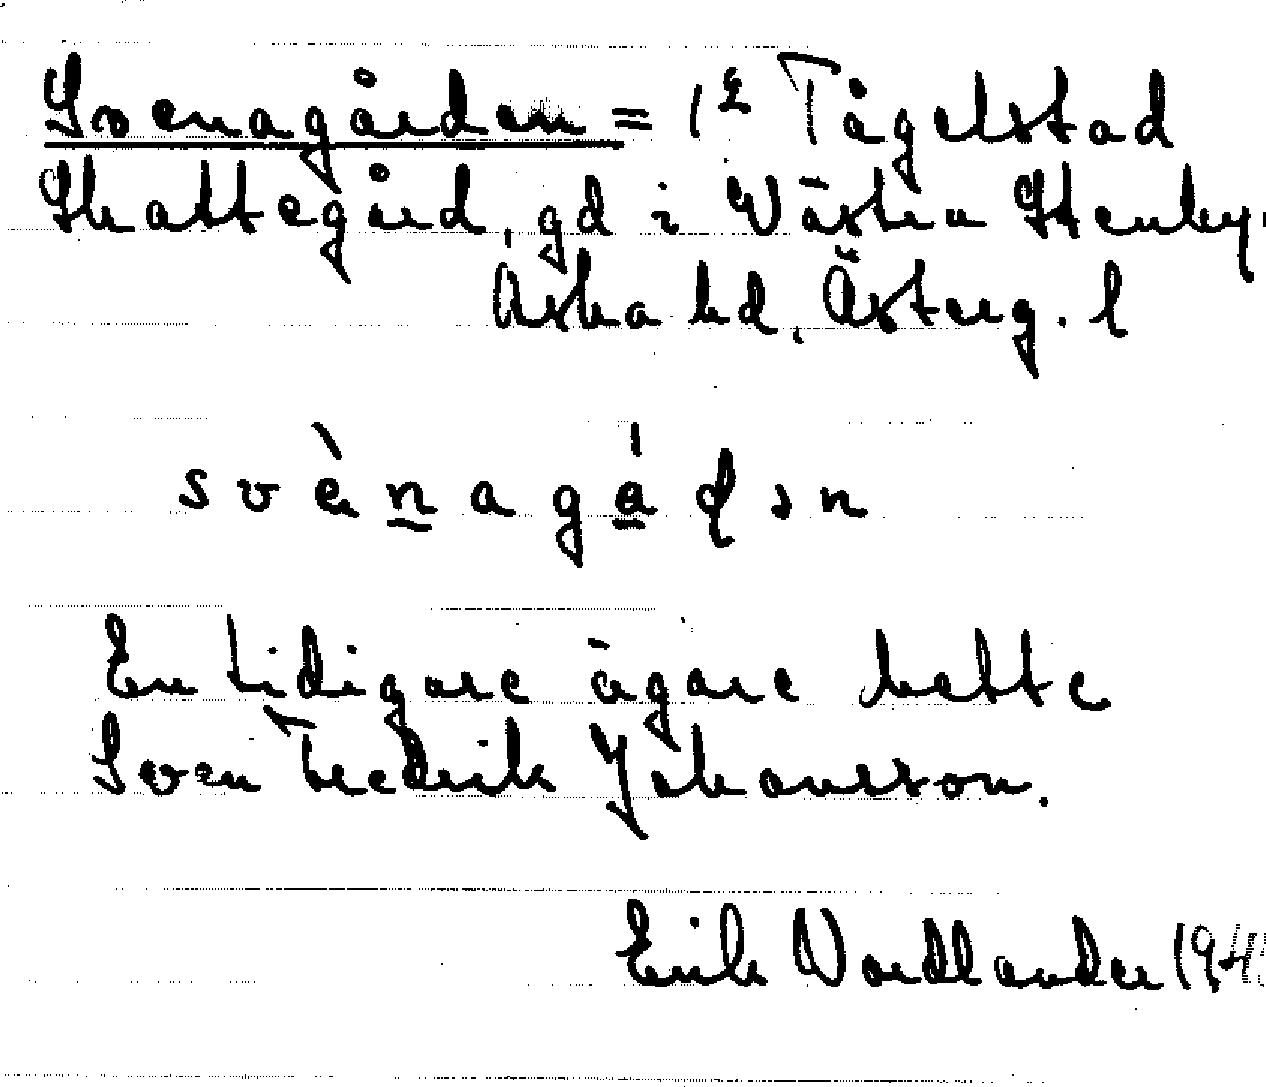 Svenagården = 1 2 Tågelstad
Skattegård, gd i Västra Stenby.
Aska hd, Österg. l
svènagáɖən
En tidigare ägare hette
Sven Fredrik Johansson.
Erik Nordlander 194